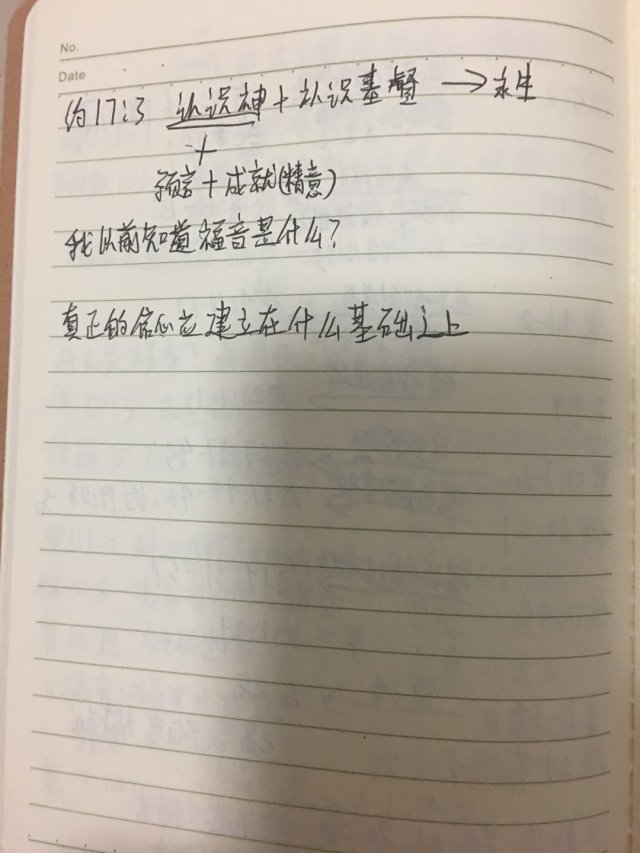 No.
Date
约17:3 认识神+认识基督→永生
预言+成就(精意)
我以前知道福音是什么?
真正的信心应建立在什么基础之上